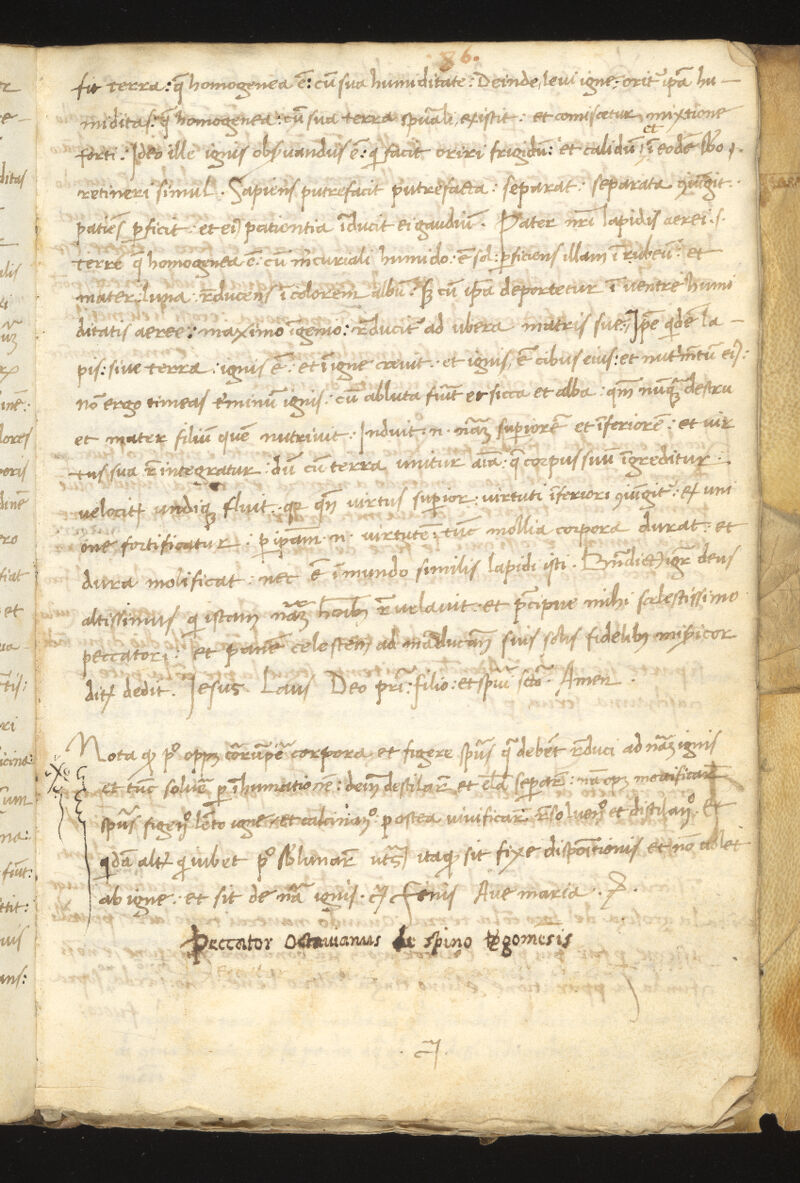 86.
fit terra: q̃ homogenea ẽ: cũ sua humiditate: Deinde, leui igne, orit̃ ip̃a hu–
miditas: q̃ homogenea: cũ sua terra spũali, existit: et comiscetur, mixtione
forti. Ideo ille ignis obseruandus ẽ: q̃ facit oriri frigidũ: et calidũ et ĩ eodẽ
retineri simul. Sapiens putrefacit putrefacta: separat: separata ꝯiũgit:
patiẽs perficit: et eiꝰ patientia ĩducit ei gaudiũ. Pater nr̃i lapidis aerei .s.
terre q̃ homogenea ẽ: cũ m̃curiali humido: ẽ sol: perficiens illam ĩ rubeũ: et
mater, luna: r̃ducens ĩ colorem albũ. cũ ip̃a deportetur ĩ uentre humi
ditatis aeree: maximo ĩgenio: r̃ducit̃ ad ubera matris sue, Ip̃e q̃dẽ la–
pis: siue terra: ignis ẽ: et ĩ igne creuit: et ignis, ẽ cibus eius: et nutrim̃tũ eiꝰ:
nõ ergo timeas t̃minũ ignis: cũ abluta fiũt et sicca et alba: qm̃ nũq̃ destru
et mater filiũ quẽ nutriuit. Induit .n. nãꝫ superiorẽ et ĩferiorẽ: et uir
tus sua r̃integratur: dũ cũ terra unitur aĩa: q̃ corpus suũ ĩgreditur:
uelocit̃ undiqꝫ fluit: qñ uirtus supior: uirtuti ĩferiori ꝯiũgit̃: ex uni
one fortificatur: p ip̃am .n. uirtutẽ, tũc mollia corpora durat: et
dura molificat: nec ẽ ĩ mundo similis lapidi isti. Bñdict̃ꝰ igr̃ deus
altissimus q̃ istam nãꝫ hoĩbꝰ r̃uelauit: et p̃cipue mihi scelestissimo
peccatori: et panẽ celestem ad mãducãdũ suis solis fidelibꝰ mĩsericor
dit̃ dedit. Iesus. Laus Deo pr̃i: filio: et spũi sctõ. Amen.
Nota qꝫ põ oppꝫ corũpẽ corpora et figere spũs q̃ debẽt r̃duci ad nãꝫ ignis
et tũc soluẽ p ĩhumationẽ: deiñ destilar̃ et el̃a separar̃: nã opꝫ mortificar̃
spũs figenº lẽto igne et calcinãº: postea uiuificar̃ r̃soluenº et distilanº. Et
q̃dã alt̃ q̃ iubet pº sblimar̃ itaqꝫ sit fixe dispositionis et nõ auolet
ab igne: et sit de nã ignis. Fenis Aue maria.
Peccator Octauianus de spino tegomesis